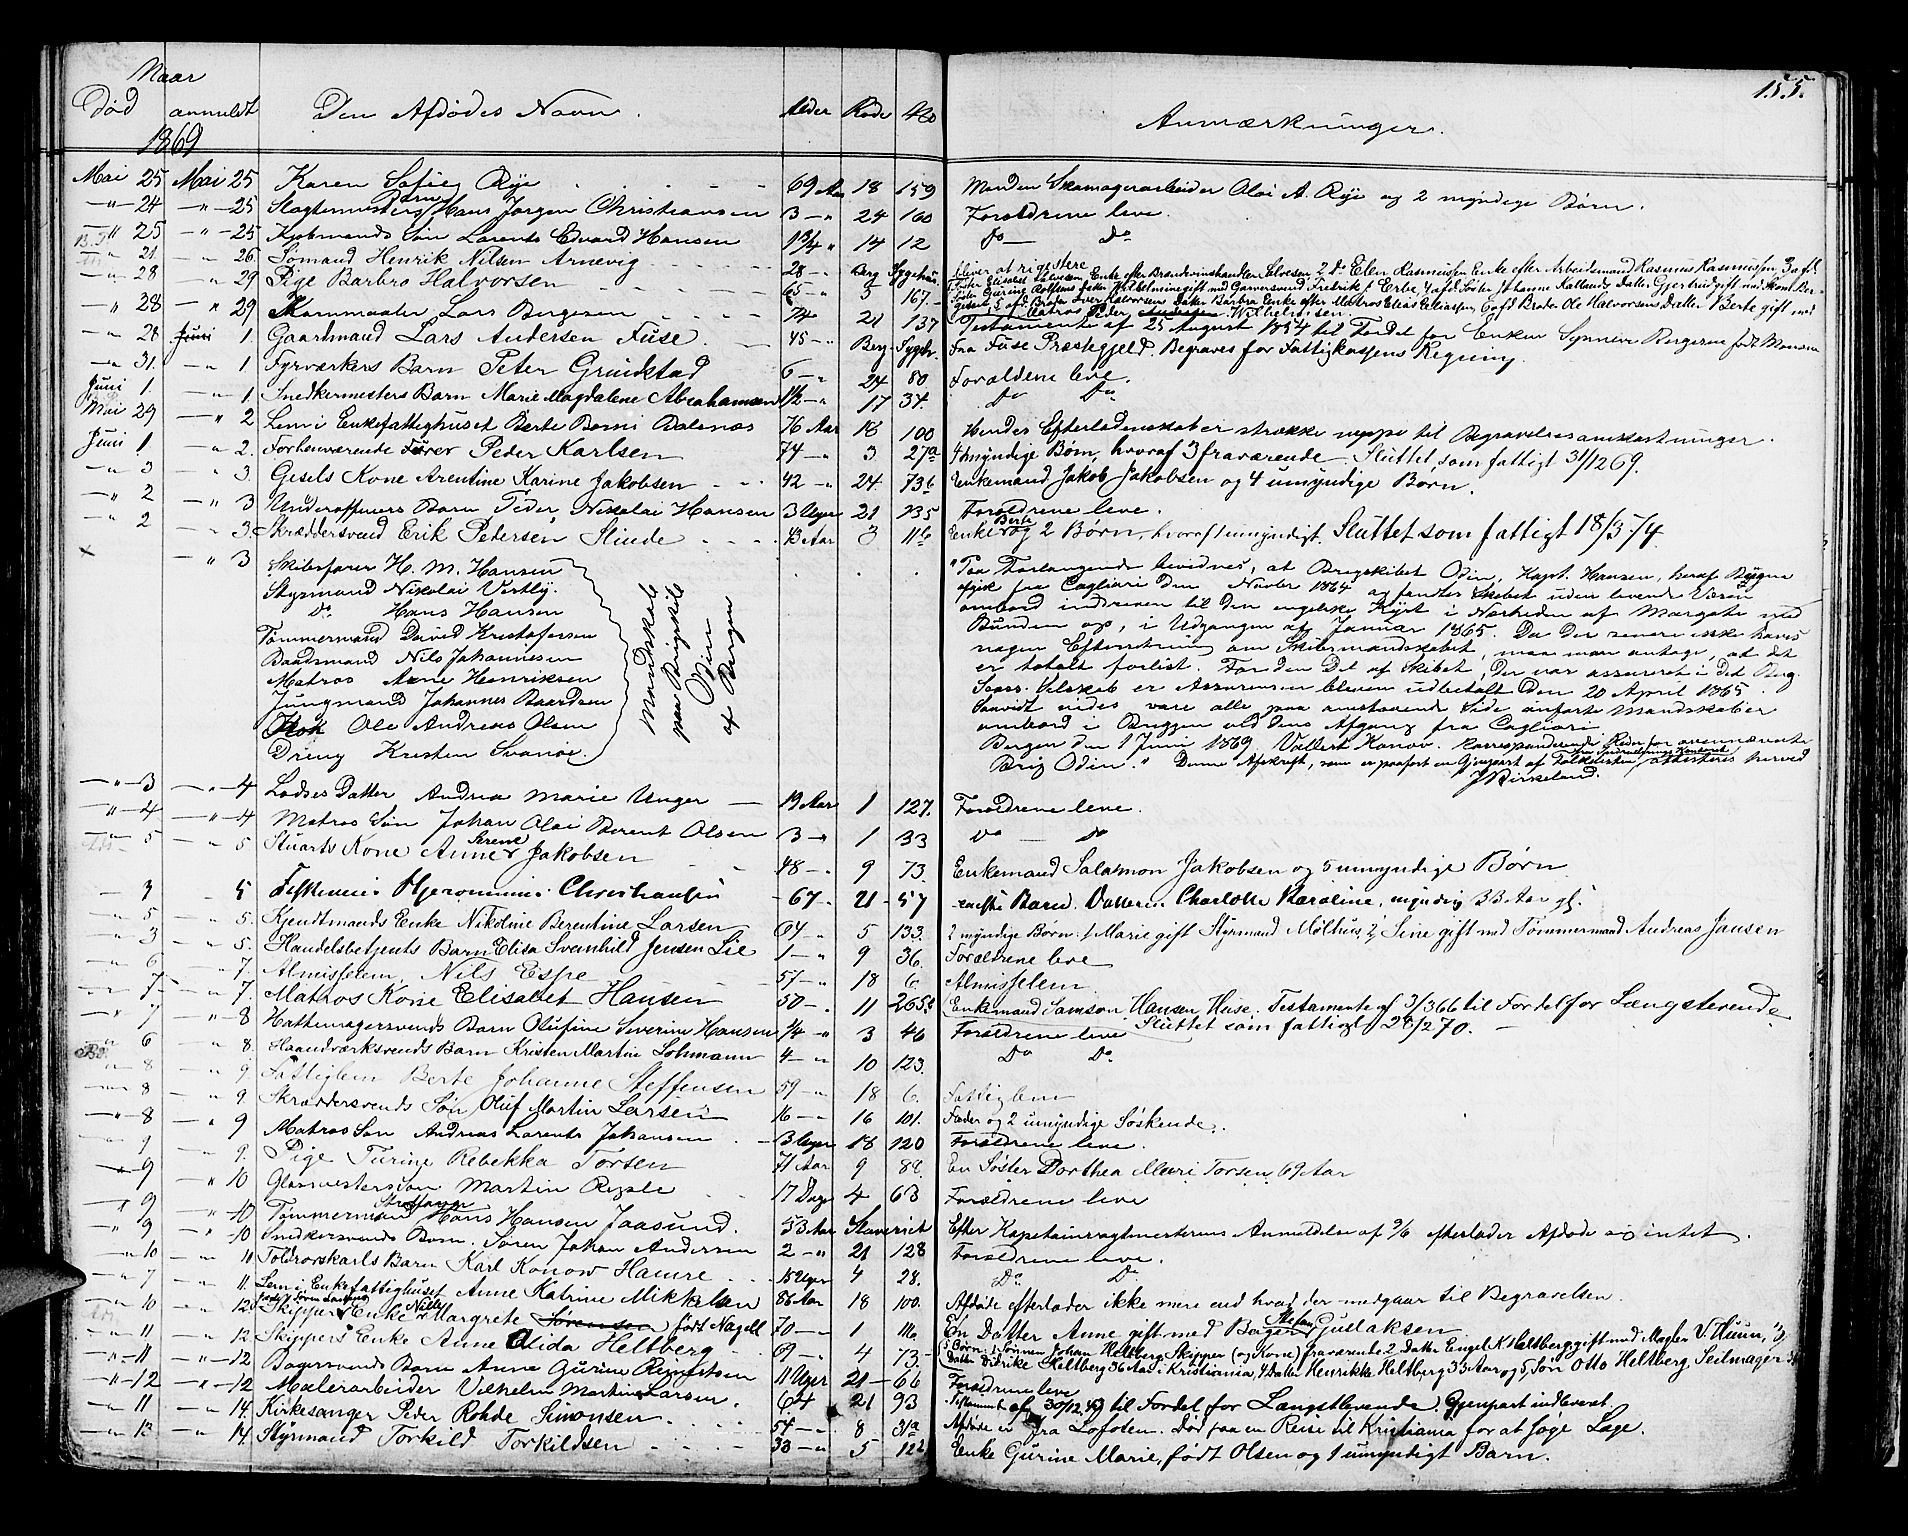 155.
Naar
Død anmeldt Den Afdødes Navn. Alder Rode No Anmærkninger.
1869
Mai 25 Mai 25 Karen Sofie Rye 69 Aar 18 159 Manden Skomagerarbeider Olai A. Rye og 2 myndige Børn.
" 24 " 25 Slagtermesters Barn Hans Jørgen Christiansen 3 " 24 160 Forældrene leve.
" 25 " 25 Kjøbmands Søn Lorentz Edvard Hansen 1 3/4 " 14 12 Do Do
" 21 " 26 Sømand Henrik Nilsen Arnevig 28 " Berg. Sygehus. bliver at registere
" 28 " 29 Pige Barbro Halvorsen 65 " 3 167
" 28 " 29 Kornmaaler Lars Bergesen 74 21 137 Testamente af 25 August 1854 til Fordel for Enken Synneve Bergesen født Monsen
" 28 Juni 1. Gaardmand Lars Andersen Fuse. 45 " Berg. Sygeh. Fra Fuse Præstegjeld. Begraves for Fattigkassens Regning.
" 31. " 1 Fyrværkers Barn Peter Grimstad 6 " 24 80 Forældrene leve.
Juni 1. " 1. Snedkermesters Barn Marie Magdalene Abrahamsen 1 1/2 " 17 34. Do Do
Mai 29 " 2 Lem i Enkefattighuset Berte Berni Dalenæs 76 Aar 18 100 Hendes Efterladenskaber strække neppe til Begravelsesomkostninger.
Juni 1 " 2. Forhenværende Fører Peder Karlsen 74 " 3. 27a 4 myndige Børn, hvoraf 3 fraværende. Sluttet som fattigt 31/12 69.
" 3 " 3. Gesels Kone Arentine Karine Jakobsen 42 " 24. 73b Enkemand Jakob Jakobsen og 4 umyndige Børn.
" 2 " 3 Underofficers Barn Peder Nikolai Hansen 3 Uger 21 235 Forældrene leve.
" 2 " 3. Skræddersvend Erik Petersen Slinde 43 Aar 3 11b Enke Berte og 2 Børn, hvoraf 1 umyndigt. Sluttet som fattigt 18/3 74.
" 3 Skibsfører H. M. Hansen
Styrmand Nikolai Vestly.
Do Hans Hansen
Tømmermand David Kristofersen
Baadsmand Nils Johannesen
Matros Arne Henriksen
Jungmand Johannes Baardsen
Kok Ole Andreas Olsen
Dreng Kristen Svanøe
Mandskab
paa Brigskib
Odin
af Bergen
"Paa Forlangende bevidnes, at Brigskibet Odin, Kapt. Hansen, heraf Byen
afgik fra Cagliari den Novbr 1864 og fandtes Skibet uden levende Væsen
ombord inddreven til den engelske Kyst i Nærheden af Margate med
Bunden op, i Udgangen af Januar 1865. Da der senere ikke haves
nogen Efterretning om Skibsmandskabet, maa man antage, at det
er totalt forlist. For den Del af Skibet, der var assureret i Det Berg.
Søass. Selskab er Assurensen bleven udbetalt den 20 April 1865.
Saavidt vides vare alle paa omstaaende Side anførte Mandskaber
ombord i Briggen ved dens Afgang fra Cagliari.
Bergen den 1 Juni 1869. Wollert Konow. Korresponderende Reder for ovennævnte
Brig Odin." Denne Afskrift, som er paaført en Gjenpart af Folkelisten, attesteres herved
J Birkeland.
" 3 " 4 Lodses Datter Andrea Marie Unger 19 Aar 1 127. Forældrene leve.
" 4 " 4 Matros Søn Johan Olai Berent Olsen 3 " 1 33 Do Do
" 5 " 5 Stuarts Kone Anne Serene Jakobsen 48 " 9 73. Enkemand Salamon Jakobsen og 5 umyndige Børn
3 5 Hjeronimus Christiansen 67 21 57 Barn. Datteren Charlotte Karoline, myndig 33 Aar gl.
" 5 " 5. Kjendtmands Enke Nikoline Berentine Larsen 64 " 5 133. 2 myndige Børn. 1 Marie gift Styrmand Mølhus, 2 Sine gift med Tømmermand Andreas Jansen
" 3 " 5. Handelsbetjents Barn Elisa Svanhild Jensen Lie 1 " 9 36. Forældrene leve
" 6 " 7. Almisselem Nils Espe 57 " 18 6. Almisselem.
" 7 " 7. Matros Kone Elisabet Hansen 50 " 11 265b Enkemand Samson Hansen Huse. Testamente af 3/3 66 til Fordel for Længstlevende
" 7 " 8 Hattemagersvends Barn Olufine Severine Hansen 1/4 " 3 46 Forældrene leve Sluttet som fattigt 28/2 70.
" 6 " 8. Haandværksvends Barn Kristen Martin Lohmann 4 " 10 123. Do Do
" 8 " 9 Fattiglem Berte Johanne Steffensen 59 " 18 6. Fattiglem
" 8 " 9. Skræddersvends Søn Oluf Martin Larsen 16 " 16 101. Fader og 2 umyndige Søskende.
" 8 " 9 Matros Søn Andreas Lorents Johansen 3 Uger 18 120 Forældrene leve.
" 9 " 9. Pige Turine Rebekka Torsen 71 Aar 9 88. En Søster Dorthea Mari Torsen 69 Aar
" 9 " 10 Glasmestersøn Martin Repsle 17 Dage 4 63 Forældrene leve
" 9 " 10 Tømmermand Straffange Hans Hansen Jaasund. 53 Aar Slaveriet Efter Kapitainvagtmesterens Anmeldelse af 9/6 efterlader Afdøde sig intet.
" 9 " 10 Snedkersvends Barn Søren Johan Andersen 2 " 21 128 Forældrene leve.
" 10 " 11 Toldrorskarls Barn Karl Konow Hamre 15 Uger 4 28. Do Do
" 7 " 11. Lem i Enkefattighuset Anne Katrine Mikkelsen 86 Aar 18 100. Afdøde efterlader ikke mere end hvad der medgaar til Begravelsen.
" 10 " 12. Skipper Enke Nille Margrete Sørensen født Nagell 70 " 1 En Datter Anne gift med Bager Stefan Gullaksen
" 11 " 12 Skippers Enke Anne Elida Heltberg 69 " 4 73. 5 Børn: 1 Sønnen Johan Heltberg Skipper (og Kone) fraværende 2 Datter Engel K Heltberg gift med Mægler V. Huun,
Datter Didrike Heltberg 36 Aar i Kristiania, 4 Datter Henrikke Heltberg 33 Aar og 5, Søn Otto Heltberg, Seilmager
" 11 " 12 Bagersvends Barn Anne Gurine Rognetsen 11 Uger 21 66 Forældrene leve
" 12 " 12 Malerarbeider Vilhelm Martin Larsen. 64 21 93 Testament af 30/12 til Fordel for Længstlevende. Gjenpart indleveret.
" 11 " 14. Kirkesanger Peder Rohde Simonsen 54 " 8 31a Afdøde er fra Lofoden. Død paa en Reise til Kristiania for at søge Læge.
" 13 " 14. Styrmand Torkild Torkildsen 33 " 5 122 Enke Gurine Marie, født Olsen og 1 umyndigt Barn.